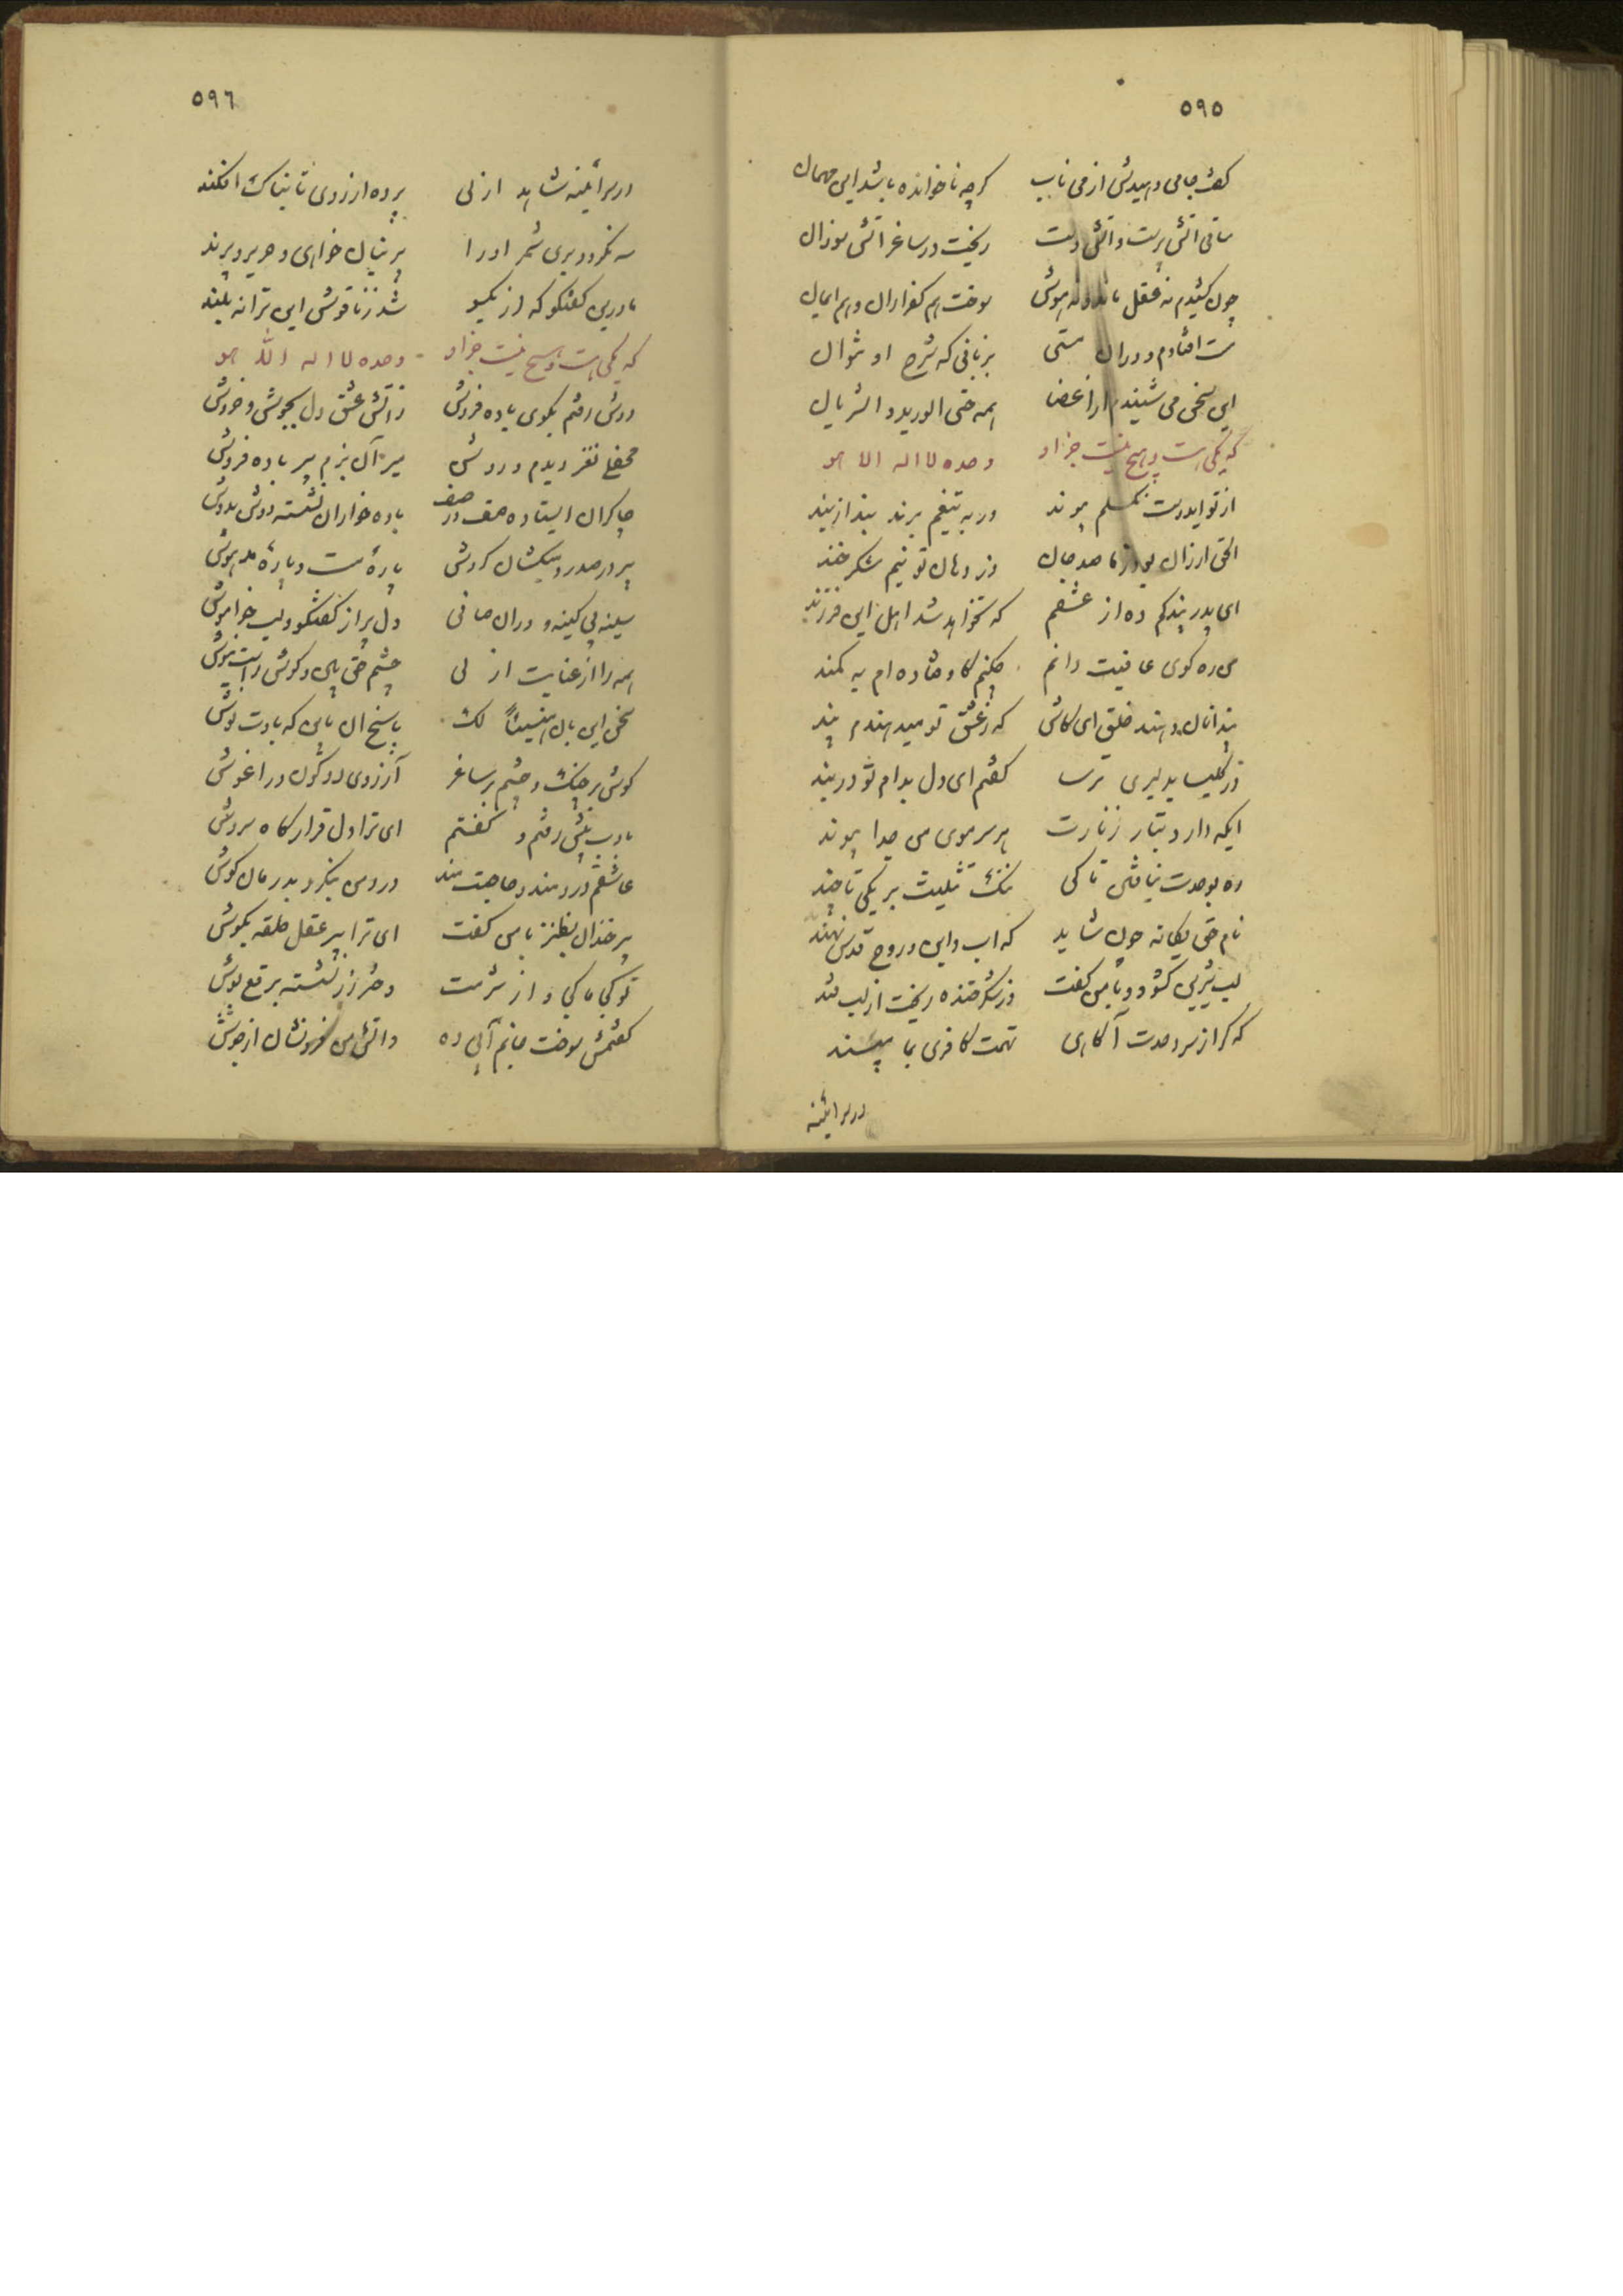 ٥٩٥
گفت جامی دهیدش از می ناب گرچه ناخوانده باشد این مهمان
ساقی آتش پرست و آتش دست ریخت در ساغر آتش سوزان
چون کشیدم نه عقل ماند و نه هوش سوخت هم کفر ازان و هم ایمان
مست افتادم و دران مستی بزبانی که شرح او نتوان
این سخن می شنیدم از اعضا همه حتی الورید و الشریان
که یکی هست و هیچ نیست جز او وحده لا اله الا هو
از تو ای دوست نگسلم پیوند ور به تیغم برند بند از بند
الحق ارزان بود ز ما صد جان وز دهان تو نیم شکر خند
ای پدر پند کم ده از عشقم که نخواهد شد اهل این فرزند
من ره کوی عافیت دانم چکنم کاوفتاده ام به کمند
پند آنان دهند خلق ای کاش که ز عشق تو میدهندم پند
در کلیسا بدلبری ترسا گفتم ای دل بدام تو در بند
ایکه دارد بتار زنارت هر سر موی من جدا پیوند
ره بوحدت نیافتن تا کی ننگ تثلیث بر یکی تا چند
نام حق یگانه چون شاید که اب و ابن و روح قدس نهند
لب شیرین گشود و با من گفت وز شکر خنده ریخت از لب قند
که گر از سر وحدت آگاهی تهمت کافری بما مپسند
در سه آئینه
٥٩٦
در سه آئینه شاهد ازلی پرده از روی تابناک افکند
سه نگردد بریشم ار او را پرنیان خوانی و حریر و پرند
ما درین گفتگو که از یکسو شد ز ناقوس این ترانه بلند
که یکی هست و هیچ نیست جز او وحده لا اله الا هو
دوش رفتم بکوی باده فروش ز آتش عشق دل بجوش و خروش
محفلی نغز دیدم و روشن میر آن بزم پیر باده فروش
چاکران ایستاده صف در صف باده خواران نشسته دوش بدوش
پیر در صدر و میکشان گردش پارهٔ مست و پارهٔ مدهوش
سینه بی کینه و درون صافی دل پر از گفتگو و لب خاموش
همه را از عنایت ازلی چشم حق بین و گوش راست نیوش
سخن این بان هنیئاً لک پاسخ آن باین که بادت نوش
گوش بر چنگ و چشم بر ساغر آرزوی دو کون در آغوش
بادب پیش رفتم و گفتم ای ترا دل قرارگاه سروش
عاشقم دردمند و حاجت مند درد من بنگر و بدرمان کوش
پیر خندان بطنز با من گفت ای ترا پیر عقل حلقه بگوش
تو کجا ما کجا و از شرمت دختر رز نشسته برقع پوش
گفتمش سوخت جانم آبی ده و آتش من فرونشان از جوش